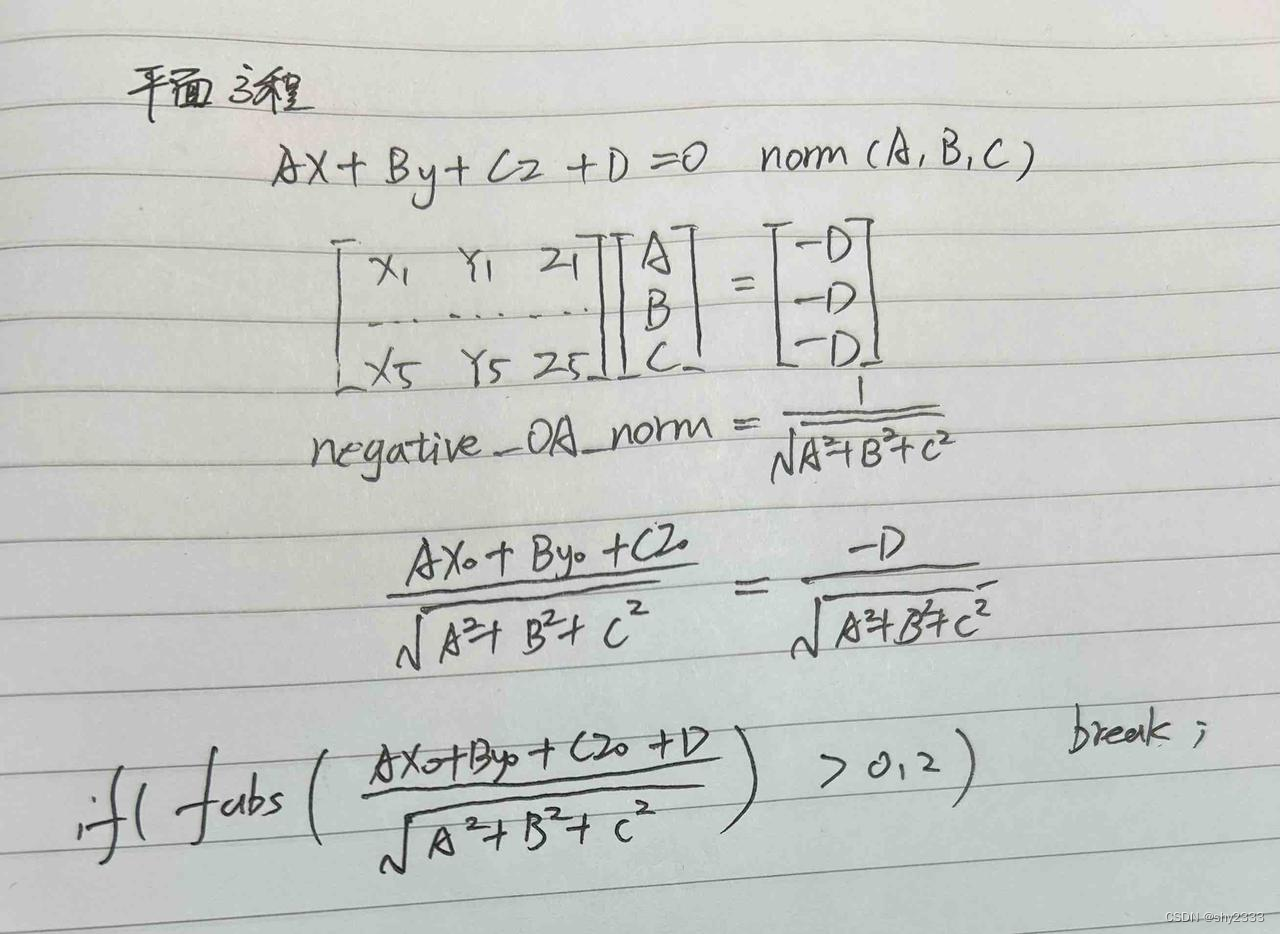 平面方程
AX + By + Cz + D = 0 norm (A, B, C)
[X1 Y1 Z1] [A] = [-D]
[... ... ...] [B] [-D]
[X5 Y5 Z5] [C] [-D]
negative_OA_norm = 1 / √(A²+B²+C²)
(AX₀ + By₀ + CZ₀) / √(A²+B²+C²) = -D / √(A²+B²+C²)
if( fabs ( (AX₀+By₀+CZ₀+D) / √(A²+B²+C²) ) > 0,2) break;
CSDN @shy2333